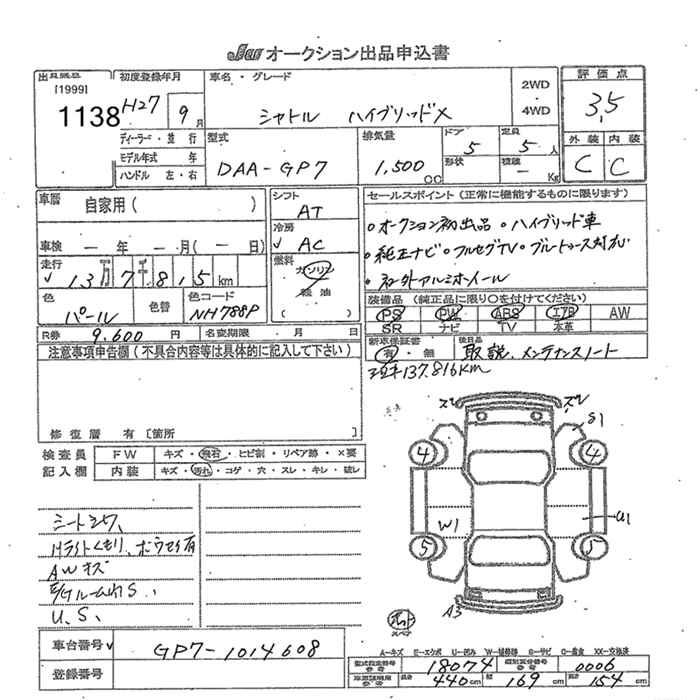 オークション出品申込書
[1999]
1138
初度登録年月
H27 9月
ディーラー・並行
モデル年式 年
ハンドル 左・右
車名・グレード
シャトル ハイブリッドX
2WD
・
4WD
評価点
3.5
外装 内装
C C
型式
DAA-GP7
排気量
1,500cc
ドア
5
形状
定員
5人
積載
- Kg
車歴
自家用( )
車検 ー年 ー月(ー日)
走行
13万7千815km
色
パール
色替
色コード
NH788P
R券 9,600円
名変期限 月 日
シフト
AT
冷房
AC
燃料
ガソリン
軽油
( )
セールスポイント(正常に機能するものに限ります)
・オークション初出品 ・ハイブリッド車
・純正ナビ・フルセグTV・ブルートゥース対応
・社外アルミホイール
装備品(純正品に限り○を付けてください)
PS PW ABS エアB AW
SR ナビ TV 本革
新車保証書
有・無
後日品
取説、メンテナンスノート
137,816km
注意事項申告欄(不具合内容等は具体的に記入して下さい)
修復歴 有[箇所
検査員
記入欄
FW キズ・飛石・ヒビ割・リペア跡・×要
内装 キズ・汚れ・コゲ・穴・スレ・キレ・破レ
シートシワ、
Hライトくもり、
AWキズ
S、
U、S、
4 S1
4
W1 U1
5 5
A3
車台番号 GP7-1014608
登録番号
A-キズ E-エクボ U-凹み W-補修跡 S-サビ C-腐食 XX-交換済
型式指定番号
参考
18074
類別区分番号
参考
0006
長さ 440cm 幅 169cm 高さ 154cm